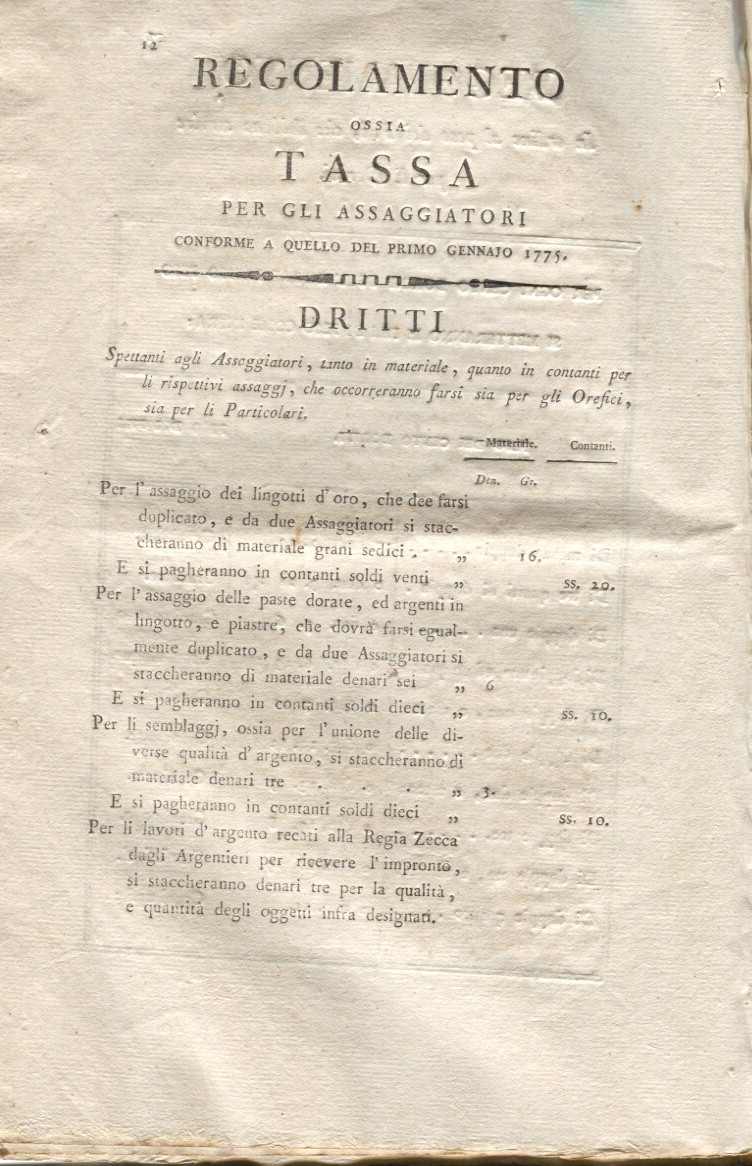 12
REGOLAMENTO
OSSIA
TASSA
PER GLI ASSAGGIATORI
CONFORME A QUELLO DEL PRIMO GENNAJO 1775.
DRITTI
Spettanti agli Assaggiatori, tanto in materiale, quanto in contanti per
li rispettivi assaggj, che occorreranno farsi sia per gli Orefici,
sia per li Particolari.
Materiale. Contanti.
Den. Gr.
Per l'assaggio dei lingotti d'oro, che dee farsi
duplicato, e da due Assaggiatori si stac-
cheranno di materiale grani sedici . „ 16.
E si pagheranno in contanti soldi venti „ SS. 20.
Per l'assaggio delle paste dorate, ed argenti in
lingotto, e piastre, che dovrà farsi egual-
mente duplicato, e da due Assaggiatori si
staccheranno di materiale denari sei „ 6
E si pagheranno in contanti soldi dieci „ SS. 10.
Per li semblaggj, ossia per l'unione delle di-
verse qualità d'argento, si staccheranno di
materiale denari tre . . . „ 3.
E si pagheranno in contanti soldi dieci „ SS. 10.
Per li lavori d'argento recati alla Regia Zecca
dagli Argentieri per ricevere l'impronto,
si staccheranno denari tre per la qualità,
e quantità degli oggetti infra designati.